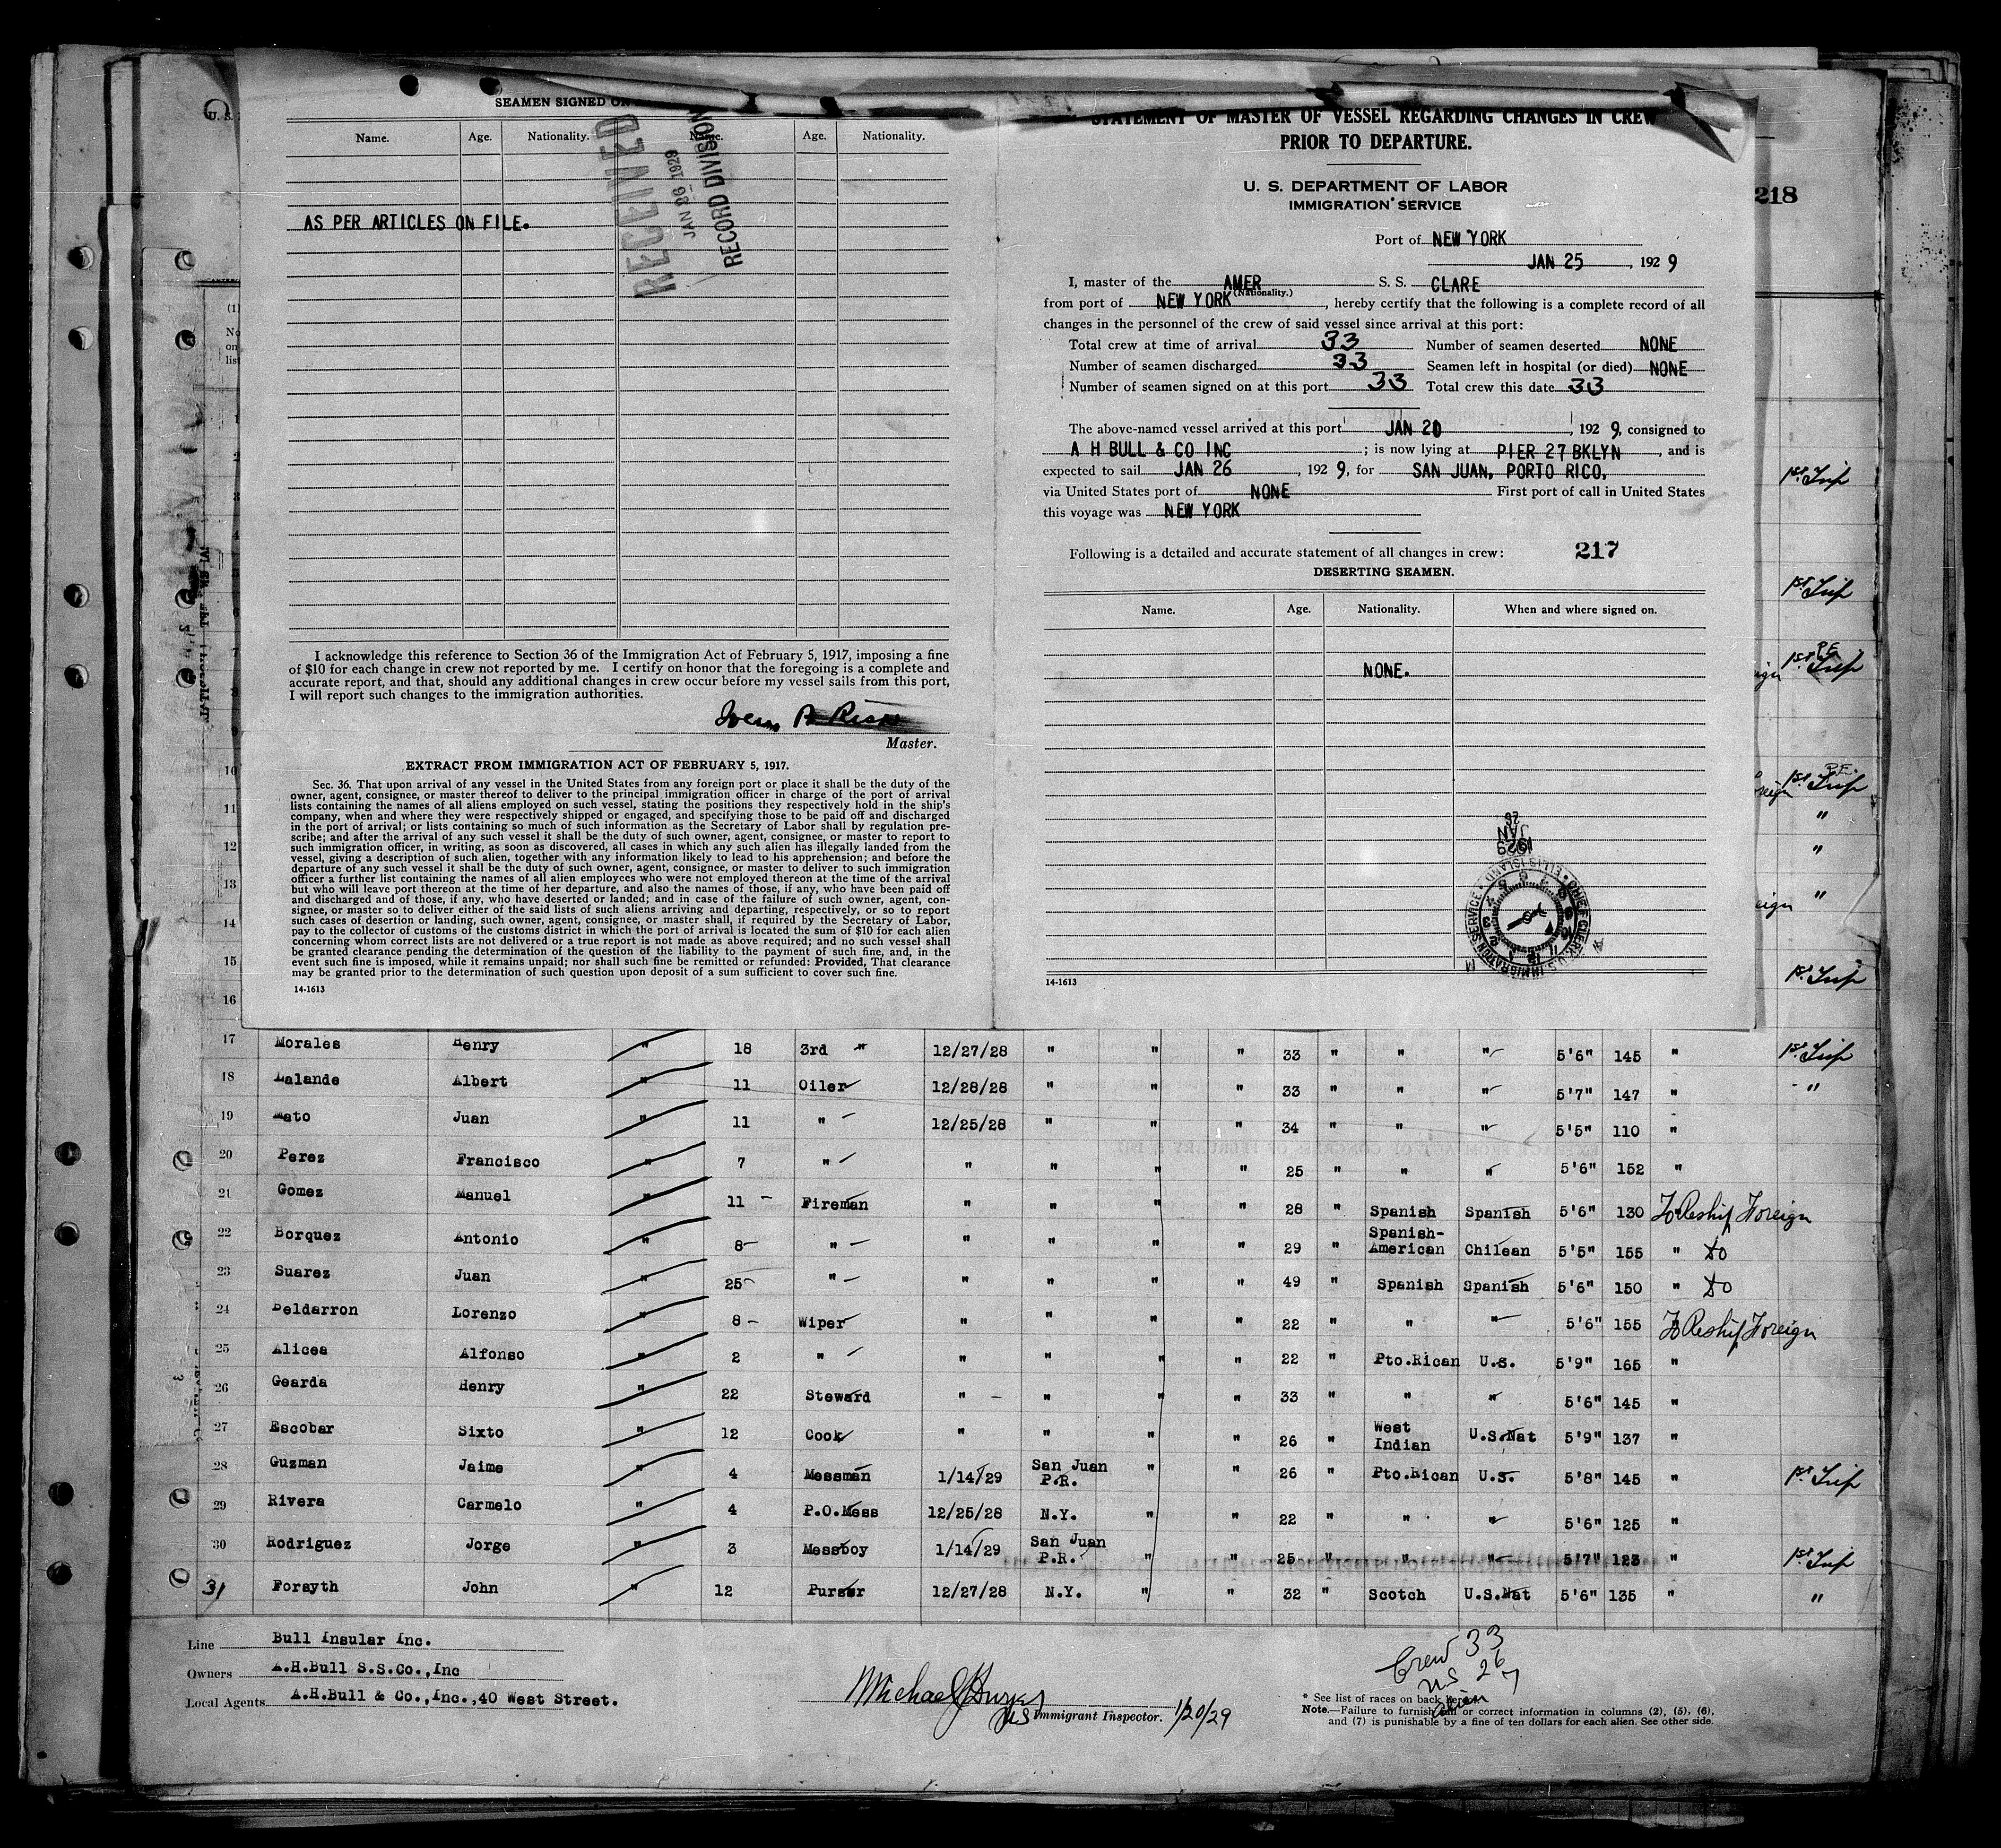 SEAMEN SIGNED ON
Name. Age. Nationality. Name. Age. Nationality.
AS PER ARTICLES ON FILE.
RECEIVED
JAN 26 1929
RECORD DIVISION
I acknowledge this reference to Section 36 of the Immigration Act of February 5, 1917, imposing a fine
of $10 for each change in crew not reported by me. I certify on honor that the foregoing is a complete and
accurate report, and that, should any additional changes in crew occur before my vessel sails from this port,
I will report such changes to the immigration authorities.
Master.
EXTRACT FROM IMMIGRATION ACT OF FEBRUARY 5, 1917.
Sec. 36. That upon arrival of any vessel in the United States from any foreign port or place it shall be the duty of the
owner, agent, consignee, or master thereof to deliver to the principal immigration officer in charge of the port of arrival
lists containing the names of all aliens employed on such vessel, stating the positions they respectively hold in the ship's
company, when and where they were respectively shipped or engaged, and specifying those to be paid off and discharged
in the port of arrival; or lists containing so much of such information as the Secretary of Labor shall by regulation pre-
scribe; and after the arrival of any such vessel it shall be the duty of such owner, agent, consignee, or master to report to
such immigration officer, in writing, as soon as discovered, all cases in which any such alien has illegally landed from the
vessel, giving a description of such alien, together with any information likely to lead to his apprehension; and before the
departure of any such vessel it shall be the duty of such owner, agent, consignee, or master to deliver to such immigration
officer a further list containing the names of all alien employees who were not employed thereon at the time of the arrival
but who will leave port thereon at the time of her departure, and also the names of those, if any, who have been paid off
and discharged and of those, if any, who have deserted or landed; and in case of the failure of such owner, agent, con-
signee, or master so to deliver either of the said lists of such aliens arriving and departing, respectively, or so to report
such cases of desertion or landing, such owner, agent, consignee, or master shall, if required by the Secretary of Labor,
pay to the collector of customs of the customs district in which the port of arrival is located the sum of $10 for each alien
concerning whom correct lists are not delivered or a true report is not made as above required; and no such vessel shall
be granted clearance pending the determination of the question of the liability to the payment of such fine, and, in the
event such fine is imposed, while it remains unpaid; nor shall such fine be remitted or refunded: Provided, That clearance
may be granted prior to the determination of such question upon deposit of a sum sufficient to cover such fine.
14-1613
STATEMENT OF MASTER OF VESSEL REGARDING CHANGES IN CREW
PRIOR TO DEPARTURE.
U. S. DEPARTMENT OF LABOR
IMMIGRATION SERVICE
Port of NEW YORK
JAN 25, 1929
I, master of the AMER S. S. CLARE
(Nationality.)
from port of NEW YORK, hereby certify that the following is a complete record of all
changes in the personnel of the crew of said vessel since arrival at this port:
Total crew at time of arrival 33 Number of seamen deserted NONE
Number of seamen discharged 33 Seamen left in hospital (or died) NONE
Number of seamen signed on at this port 33 Total crew this date 33
The above-named vessel arrived at this port JAN 20, 1929, consigned to
A H BULL & CO INC; is now lying at PIER 27 BKLYN, and is
expected to sail JAN 26, 1929, for SAN JUAN, PORTO RICO,
via United States port of NONE First port of call in United States
this voyage was NEW YORK
Following is a detailed and accurate statement of all changes in crew: 217
DESERTING SEAMEN.
Name. Age. Nationality. When and where signed on.
NONE.
1929
JAN
26
CHIEF CLERK, U.S. IMMIGRATION SERVICE ELLIS ISLAND
14-1613
218
1st Trip
1st Trip
P.E.
1st Trip
10 P.E. 1st Trip
11 "
12 "
13 "
14
15 1st Trip
16
17 Morales Henry " 18 3rd " 12/27/28 " " " 33 " " " 5'6" 145 " 1st Trip
18 Lalande Albert " 11 Oiler 12/28/28 " " " 33 " " " 5'7" 147 " "
19 Mato Juan " 11 " 12/25/28 " " " 34 " " " 5'5" 110 "
20 Perez Francisco " 7 " " " " " 25 " " " 5'6" 152 "
21 Gomez Manuel " 11 Fireman " " " " 28 " Spanish Spanish 5'6" 130 To Reship Foreign
22 Borquez Antonio " 8 " " " " " 29 " Spanish-American Chilean 5'5" 155 " do
23 Suarez Juan " 25 " " " " " 49 " Spanish Spanish 5'6" 150 " do
24 Beldarron Lorenzo " 8 Wiper " " " " 22 " " " 5'6" 155 To Reship Foreign
25 Alicea Alfonso " 2 " " " " " 22 " Pto.Rican U.S. 5'9" 165 "
26 Gearda Henry " 22 Steward " " " " 33 " " " 5'6" 145 "
27 Escobar Sixto " 12 Cook " " " " 26 " West Indian U.S.Nat 5'9" 137 "
28 Guzman Jaime " 4 Messman 1/14/29 San Juan P.R. " " 26 " Pto.Rican U.S. 5'8" 145 " 1st Trip
29 Rivera Carmelo " 4 P.O.Mess 12/25/28 N.Y. " " 22 " " " 5'6" 125 "
30 Rodriguez Jorge " 3 Messboy 1/14/29 San Juan P.R. " " 25 " " " 5'7" 123 " 1st Trip
31 Forsyth John " 12 Purser 12/27/28 N.Y. " " 32 " Scotch U.S.Nat 5'6" 135 " "
Line Bull Insular Inc.
Owners A.H.Bull S.S.Co.,Inc
Local Agents A.H.Bull & Co.,Inc.,40 West Street.
US Immigrant Inspector. 1/20/29
Crew 33
US 26
alien 7
* See list of races on back hereof.
Note.—Failure to furnish full or correct information in columns (2), (5), (6),
and (7) is punishable by a fine of ten dollars for each alien. See other side.